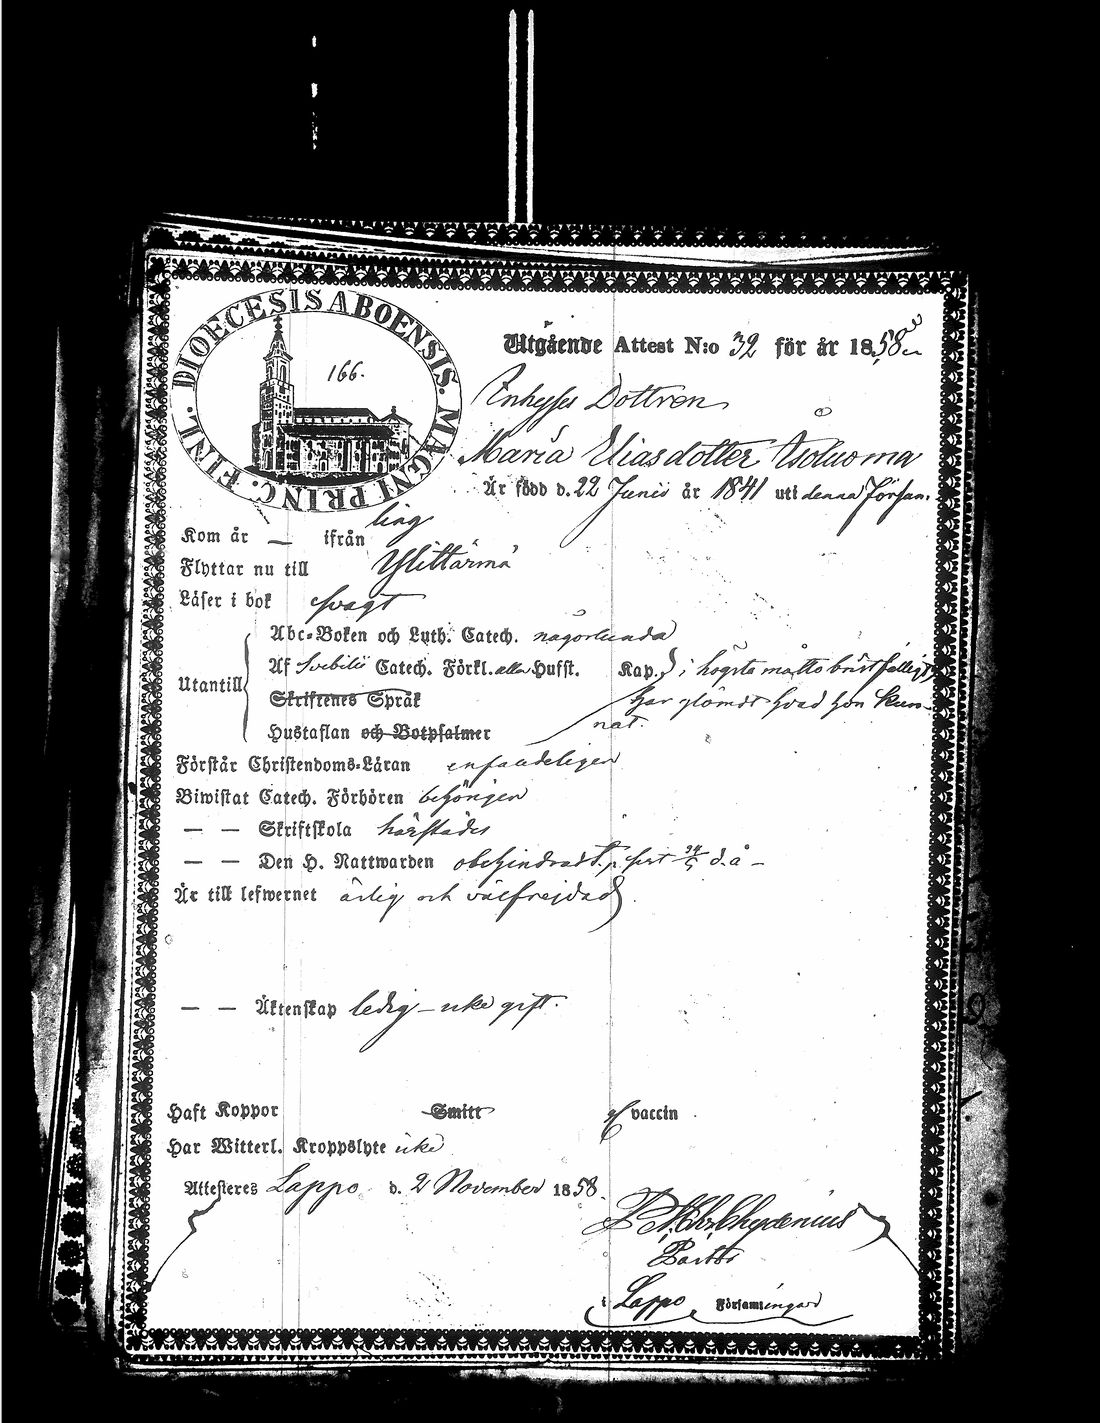 DIOECESIS ABOENSIS. MAGNI PRINC. FINL.
166.
Utgående Attest N:o 32 för år 1858
Inhyses Dottren
Maria Eliasdotter Åsoluoma
Är född d. 22 Junii år 1841 uti denna Försam-
ling
Kom år — ifrån
Flyttar nu till Ylittärmä
Läser i bok svagt
Utantill
Abc-Boken och Luth. Catech. någorlunda
Af Svebilii Catech. Förkl. alla Hufst. Kap. i högsta måtto bristfälligt
Skriftenes Språk har glömdt hvad hon kun-
nat.
Hustaflan och Botpsalmer
Förstår Christendoms-Läran enfaldeligen
Biwistat Catech. Förhören behörigen
— — Skriftskola härstädes
— — Den H. Nattwarden obehindradt, sist 24/5 d. å —
Är till lefwernet ärlig och välfrejdad
— — Äktenskap ledig – icke gift.
Haft Koppor Smitt vaccin
Har Witterl. Kroppslyte icke
Attesteres Lappo d. 2 November 1858.
Chydenius
Pastor
i Lappo Församlingar